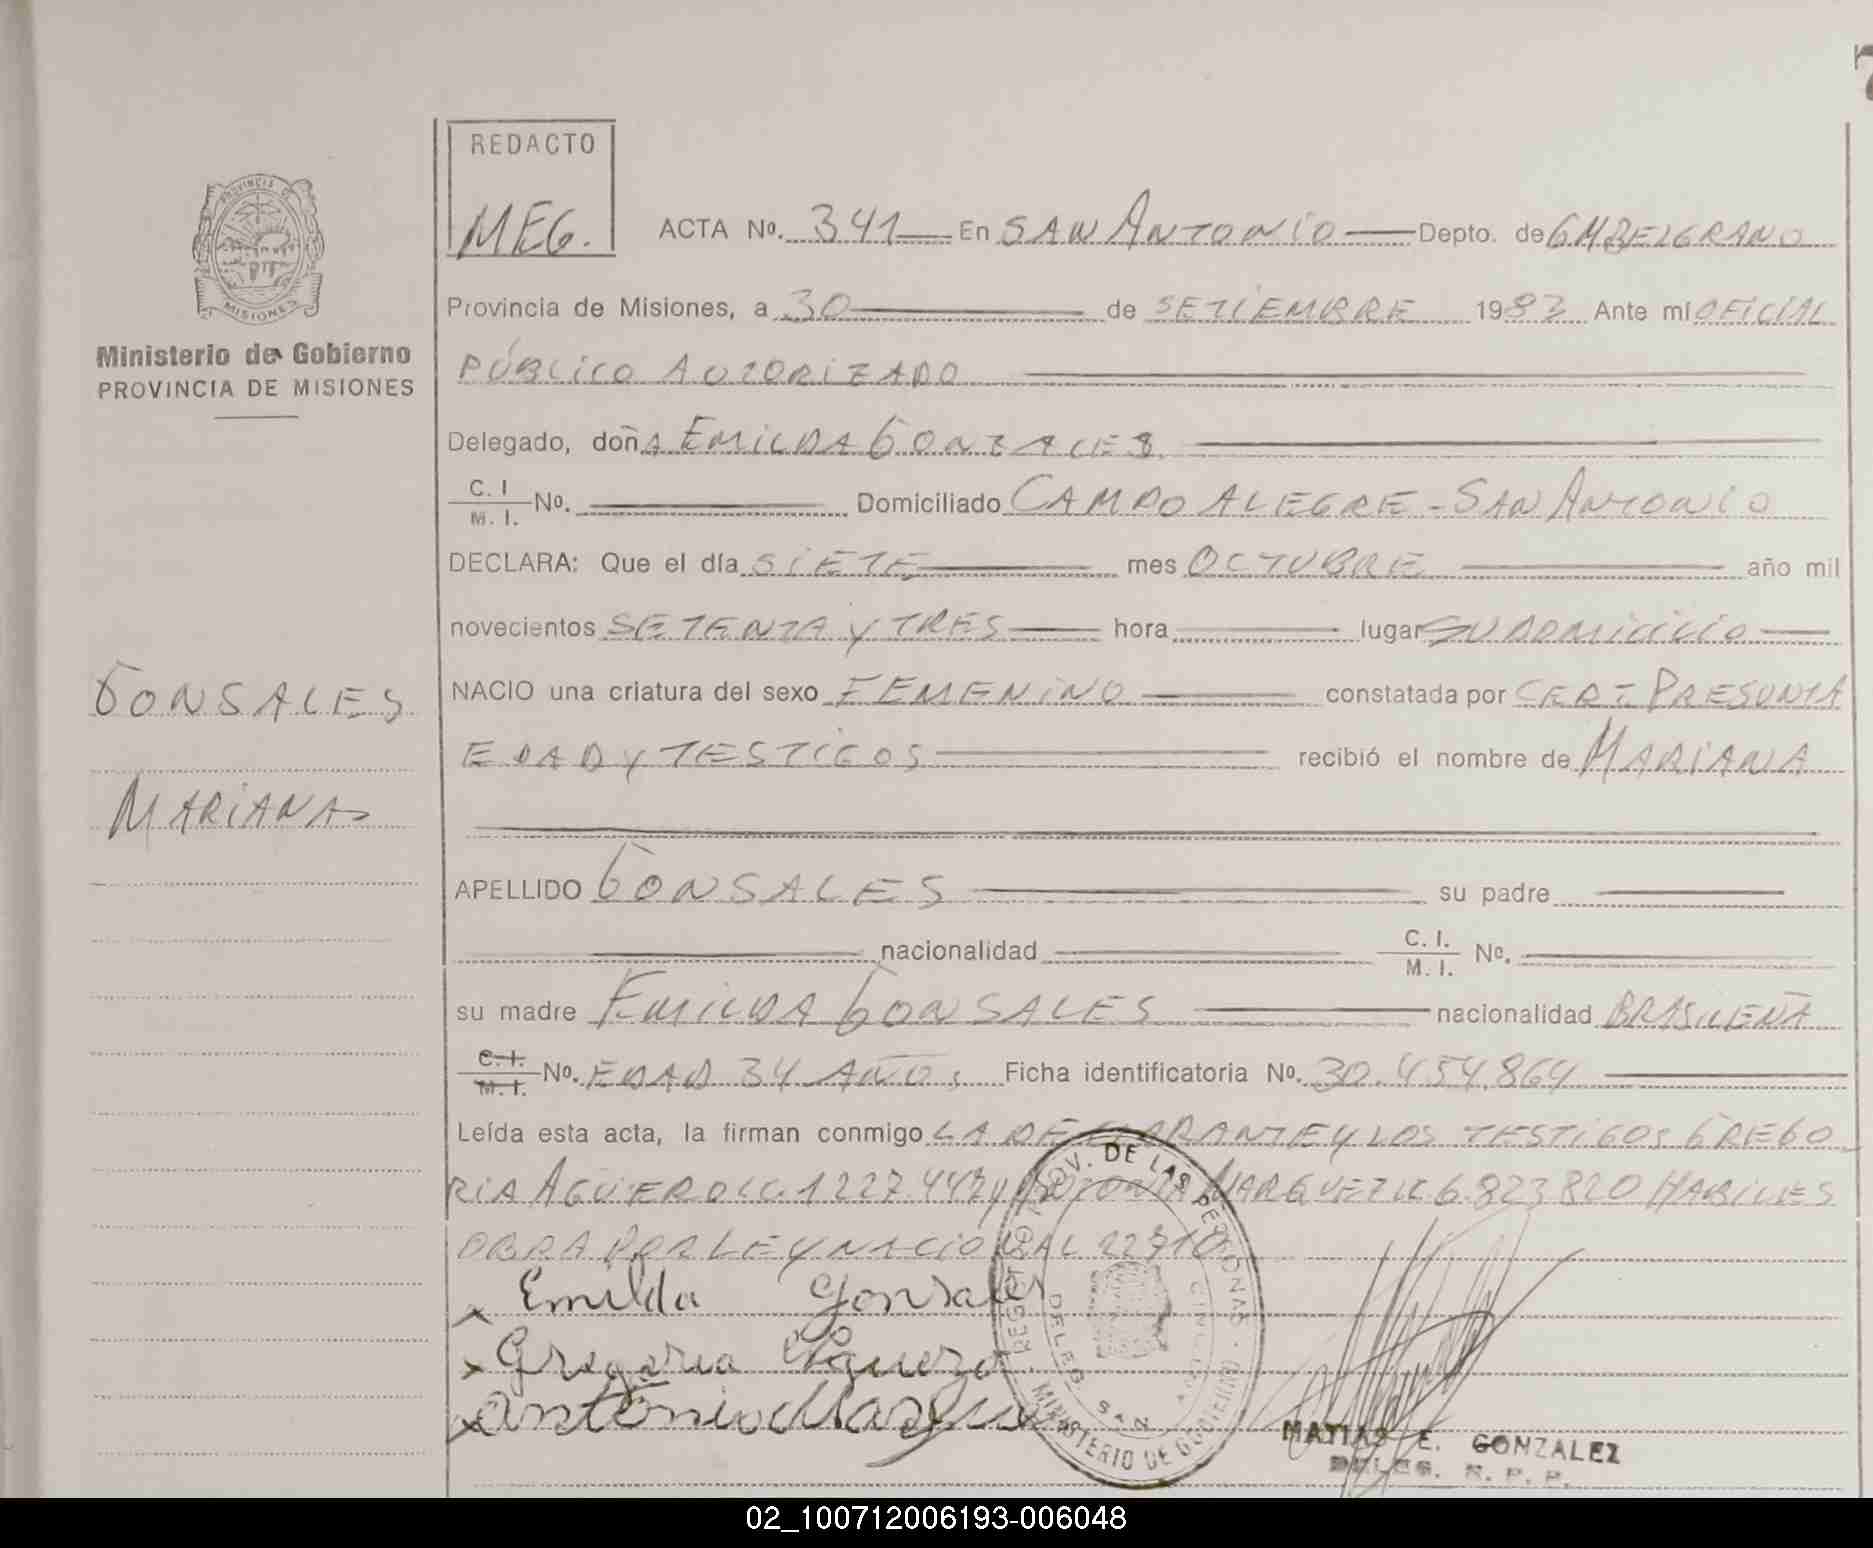 7
REDACTO
MEG.
PROVINCIA DE
MISIONES
Ministerio de Gobierno
PROVINCIA DE MISIONES
ACTA No. 341 En SAN ANTONIO Depto. de GM BELGRANO
Provincia de Misiones, a 30 de SETIEMBRE 1983 Ante mi OFICIAL
PÚBLICO AUTORIZADO
Delegado, doñA EMILDA GONZALES
C. I
M. I. No. Domiciliado CAMPO ALEGRE - SAN ANTONIO
DECLARA: Que el día SIETE mes OCTUBRE año mil
novecientos SETENTA Y TRES hora lugar SU DOMICILIO
GONSALES
NACIO una criatura del sexo FEMENINO constatada por CERT. PRESUNTA
EDAD Y TESTIGOS recibió el nombre de MARIANA
MARIANA
APELLIDO GONSALES su padre
nacionalidad C. I.
M. I. No.
su madre EMILDA GONSALES nacionalidad BRASILEÑA
C. I.
M. I. No. EDAD 34 AÑOS Ficha identificatoria No. 30.454.864
Leída esta acta, la firman conmigo LA DECLARANTE Y LOS TESTIGOS GREGO
RIA AGÜERO 1227.447 Y ANTONIA MARQUEZ 6.823820 HABILES
OBRA POR LEY NACIONAL
Emilda Gonsales
Gregoria Aguero
Antonio Marquez
REGISTRO PROV. DE LAS PERSONAS - MINISTERIO DE GOBIERNO
DELEG. SAN
MATIAS E. GONZALEZ
DELEG. R. P. P.
02_100712006193-006048